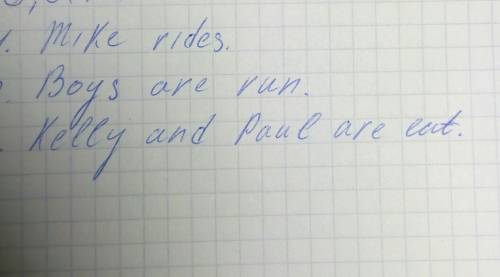 1. Mike rides.
2. Boys are run.
Kelly and Paul are eat.